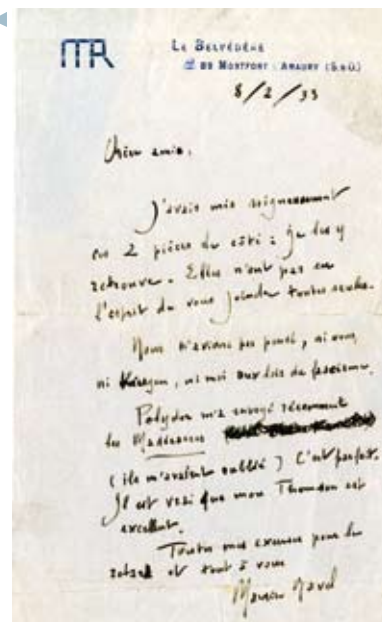 MR
LE BELVÉDÈRE
☎ 89 MONTFORT L'AMAURY (S & O)
8/2/33
Cher ami,
J'avais mis soigneusement
ces 2 pièces de côté : je les y
retrouve. Elles n'ont pas eu
l'esprit de vous joindre toutes seules.
Nous n'avions pas pensé, ni vous,
ni Kiesgen, ni moi aux lois du fascisme.
Polydor m'a envoyé récemment
les Madécasses
(ils m'avaient oublié) C'est parfait.
Il est vrai que mon Thomson est
excellent.
Toutes mes excuses pour le
retard et tout à vous
Maurice Ravel